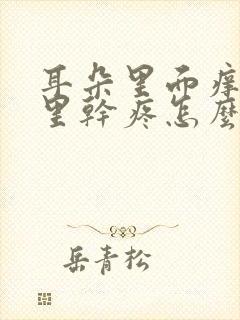 耳朵里面痒
里幹疼怎麽
岳青松